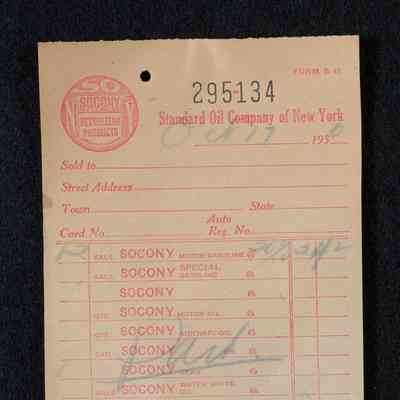 FORM B 41
SO
SOCONY
PETROLEUM
PRODUCTS
295-134
Standard Oil Company of New York
Oct 17 195
Sold to
Street Address
Town State
Auto
Card No. Reg. No.
GALS. SOCONY MOTOR GASOLINE @
GALS. SOCONY SPECIAL GASOLINE @
SOCONY @
QTS. SOCONY MOTOR OIL @
QTS. SOCONY AIRCRAFT OIL @
SOCONY @
SOCONY @
SOCONY WATER WHITE OIL @